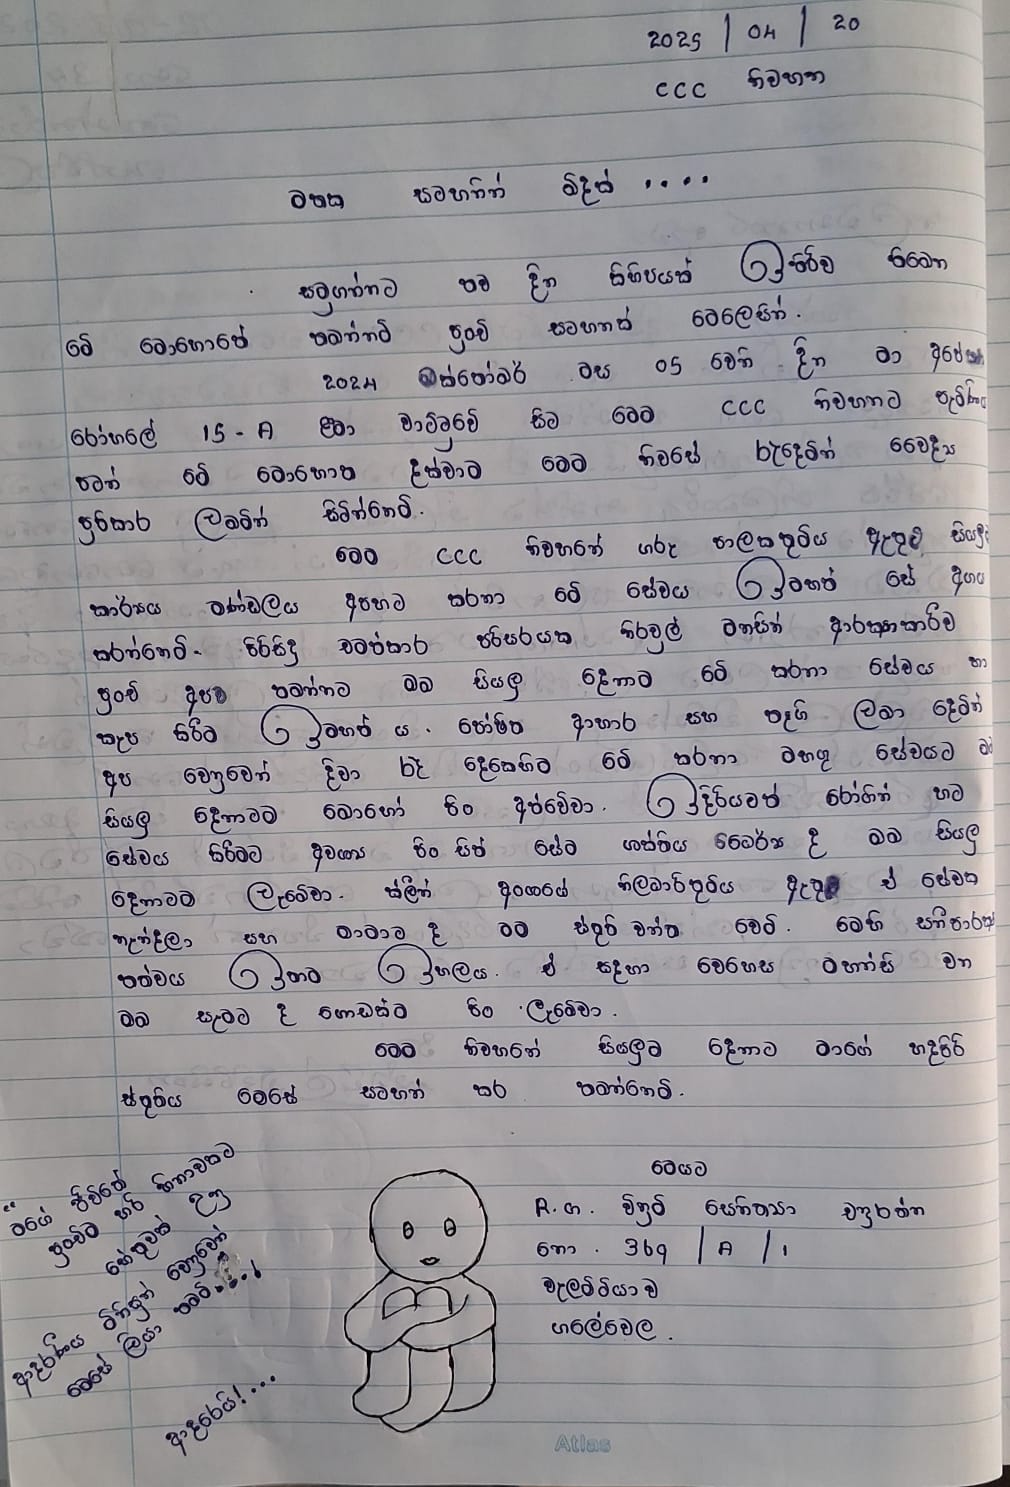 2025 | 04 | 20
CCC නිවහන
මතක සටහනින් බිඳක් ....
සමුගන්නට තව දින කිහිපයක් ඉතිරිව තිබෙන
මේ මොහොතේ තබන්නම් පුංචි සටහනක් මෙලෙසින්.
2024 ඔක්තෝබර් මස 05 වෙනි දින මා අපේක්ෂා
රෝහලේ 15 - A ළමා වාට්ටුවේ සිට මෙම CCC නිවහනට පැමිණිය
පටන් මේ මොහොත දක්වාම මෙම නිවසේ රැඳෙමින් වෛද්‍ය
ප්‍රතිකාර ලබමින් සිටින්නෙමි.
මෙම CCC නිවහනේ ගරු පාලකතුමිය ඇතුළු සියලුම
කාර්ය මණ්ඩලය අපහට කරනා මේ සේවය ඉමහත් සේ අගය
කරන්නෙමි. පිරිසිදු චමත්කාර පරිසරයක නිරවුල් මනසින් ආරක්ෂාකාරීව
පුංචි අපව තබන්නට ඔබ සියලු දෙනාම මේ කරනා සේවය හා
කැප කිරීම ඉමහත් ය. පෝෂිත ආහාර සහ තෑගි ලබා දෙමින්
අප වෙනුවෙන් දිවා රෑ දෙකෙහිම මේ කරනා මහඟු සේවයට ඔබ
සියලු දෙනාටම බොහෝ පිං අත්වේවා. ඉදිරියටත් රෝගීන් හට
සේවය කිරීමට අවශ්‍ය පිං සිත් සේම ශක්තිය ධෛර්ය ද ඔබ සියලු
දෙනාටම ලැබේවා. ක්ලීන් අංශයේ නිලධාරිතුමිය ඇතුළු ඒ සේවක
නැන්දලා සහ මාමාට ද මම ස්තුති වන්ත වෙමි. මෙහි සනීපාරක්ෂක
තත්වය ඉතාම ඉහලය. ඒ සඳහා වෙහෙස මහන්සි වන
ඔබ සැමට ද ගොඩක්ම පිං ලැබේවා.
මෙම නිවහනේ සියලුම දෙනාට මාගේ හදපිරි
ස්තුතිය මෙසේ සටහන් කර තබන්නෙමි.
" මගේ ජීවිතේ
පුංචිම හරි හිනාවකට
හේතුවක් වුනු
ආදරණීය මිනිසුන් වෙනුවෙන්
මෙසේ ලියා තබමි....!
ආදරෙයි!...
මෙයට
R.G. විනුරි සෙත්සරා චතුරන්ත
නො. 369 / A / 1
වැලම්ටියාව
ගලේවෙල.
Atlas